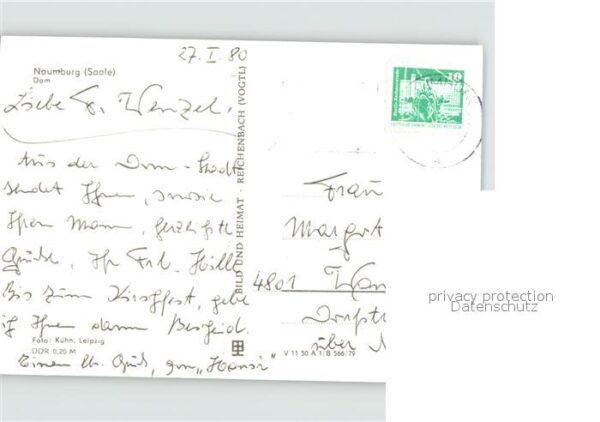 27. I. 80
Naumburg (Saale)
Dom
Liebe Fr. Wenzel.
Aus der Dom-Stadt
sendet Ihnen, sowie
Ihrem Mann, herzlichste
Grüße, Ihr Frl. Hölle
Bis zum Kirschfest, gebe
ich Ihnen dann Bescheid.
Foto: Kühn, Leipzig
DDR 0,20 M
Einen lb. Gruß, "Hansi"
BILD UND HEIMAT · REICHENBACH (VOGTL)
V 11 50 A 1/B 566/79
10
Frau
Margot
4801
Dorfstr
über
privacy protection
Datenschutz